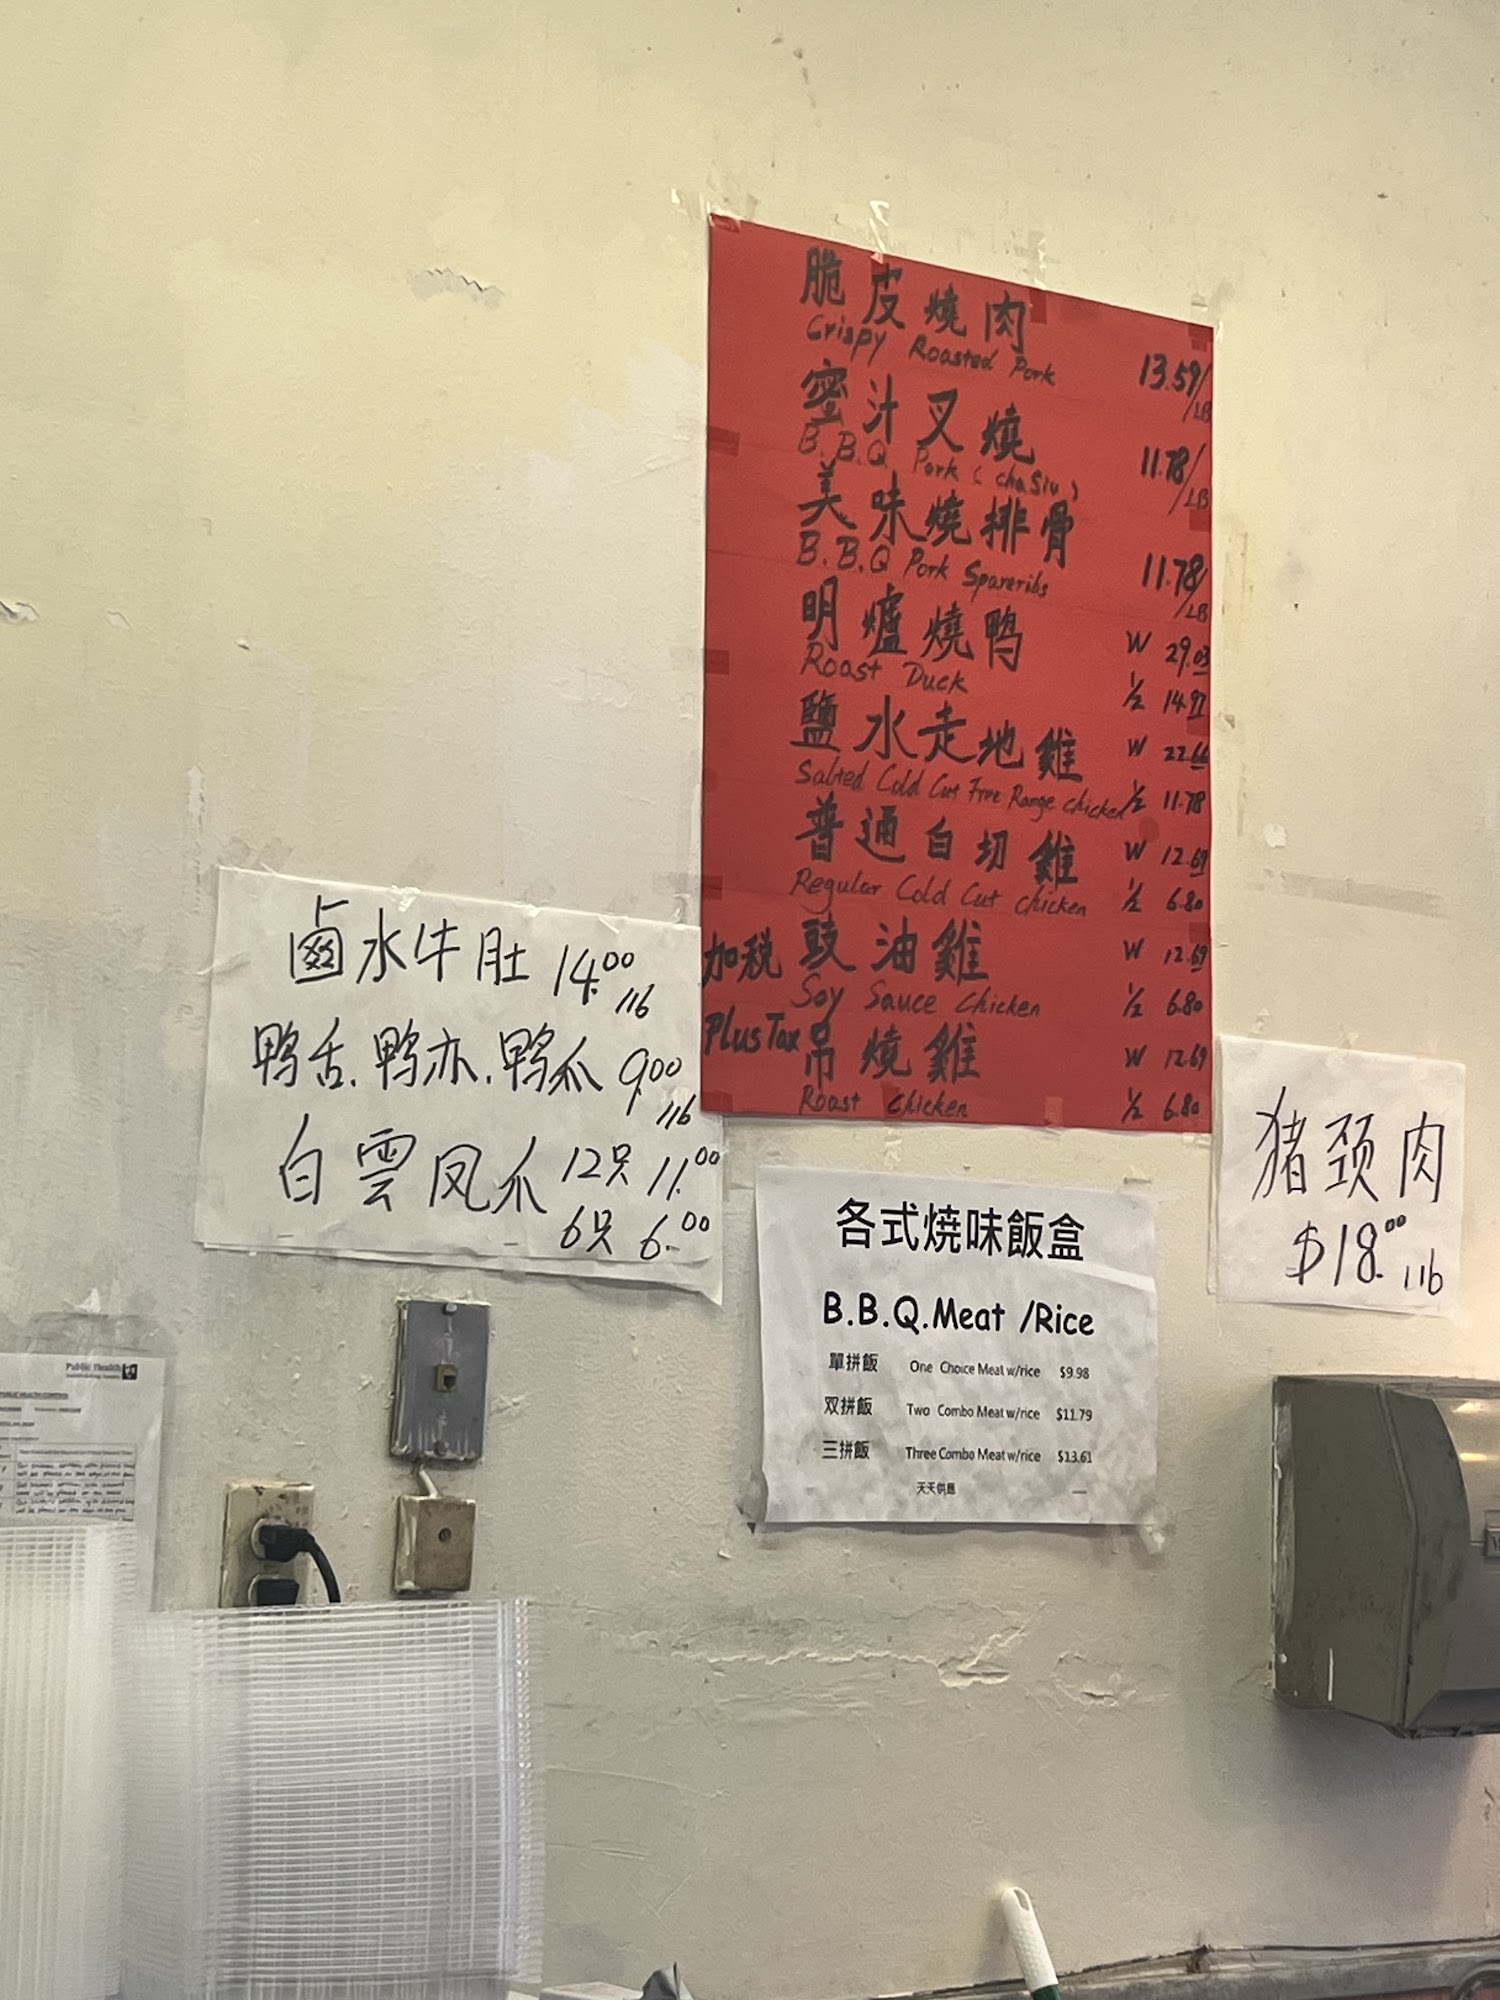 脆皮燒肉
Crispy Roasted Pork 13.59/LB
蜜汁叉燒
B.B.Q Pork (chaSiu) 11.78/LB
美味燒排骨
B.B.Q Pork Spareribs 11.78/LB
明爐燒鸭 W 29.03
Roast Duck 1/2 14.97
鹽水走地雞 W 22.66
Salted Cold Cut Free Range chicken 1/2 11.78
普通白切雞 W 12.69
Regular Cold Cut chicken 1/2 6.80
加税 豉油雞 W 12.69
Soy Sauce chicken 1/2 6.80
Plus Tax 吊燒雞 W 12.69
Roast chicken 1/2 6.80
鹵水牛肚 14.00 1lb
鸭舌.鸭亦.鸭爪 9.00 1lb
白雲凤爪 12只 11.00
6只 6.00
猪颈肉
$18.00 1lb
各式燒味飯盒
B.B.Q.Meat /Rice
單拼飯 One Choice Meat w/rice $9.98
双拼飯 Two Combo Meat w/rice $11.79
三拼飯 Three Combo Meat w/rice $13.61
天天供應
Public Health